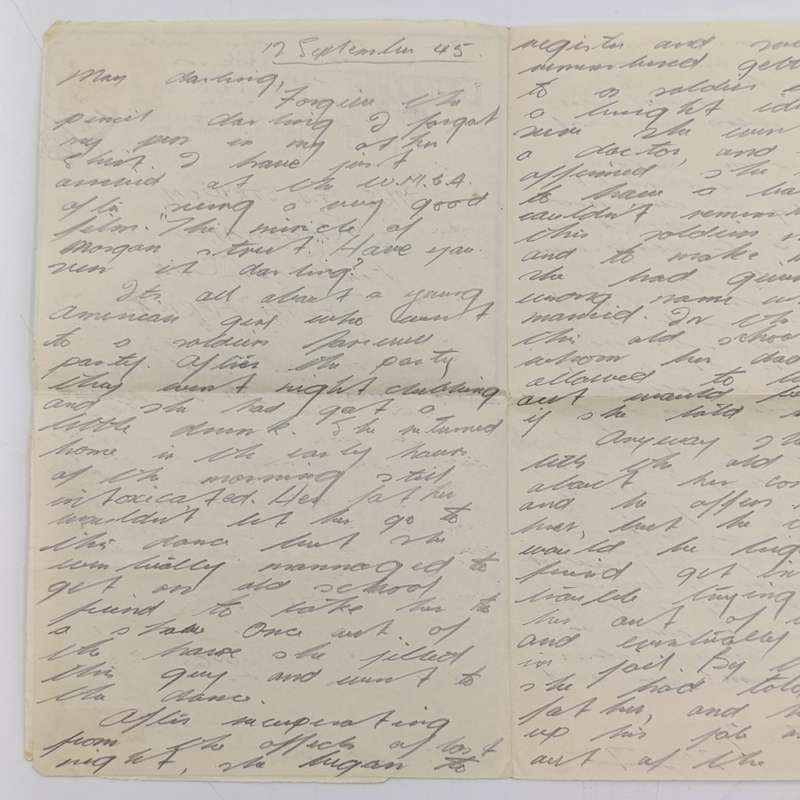 12 September 45.
May darling,
Forgive the
pencil darling I forgot
my pen in my other
shirt. I have just
arrived at the W.M.S.A.
after seeing a very good
film. "The miricle of
Morgan street" Have you
seen it darling?
Its all about a young
American girl who went
to a soldiers farewell
party. After the party
they went night clubbing
and she had got a
little drunk. She returned
home in the early hours
of the morning still
intoxicated. Her father
wouldn't let her go to
this dance but she
eventually mannaged to
get an old school
friend to take her to
a show Once out of
the house she jilted
this guy and went to
the dance.
After recuperating
from the affects of last
night, she began to
register and
remembered
to a soldier
a bright
sure she
a doctor, and
affirmed she
to have a
couldn't
this soldiers
and to make
she had
wrong name
married. In
this old
whom her dad
allowed to
out would
if she told
Anyway
tells the old
about her
and he offers
her, but he
would be
friend get in
trouble trying
her out of
and eventually
in jail. By
she had told
father, and
up his job
out of the